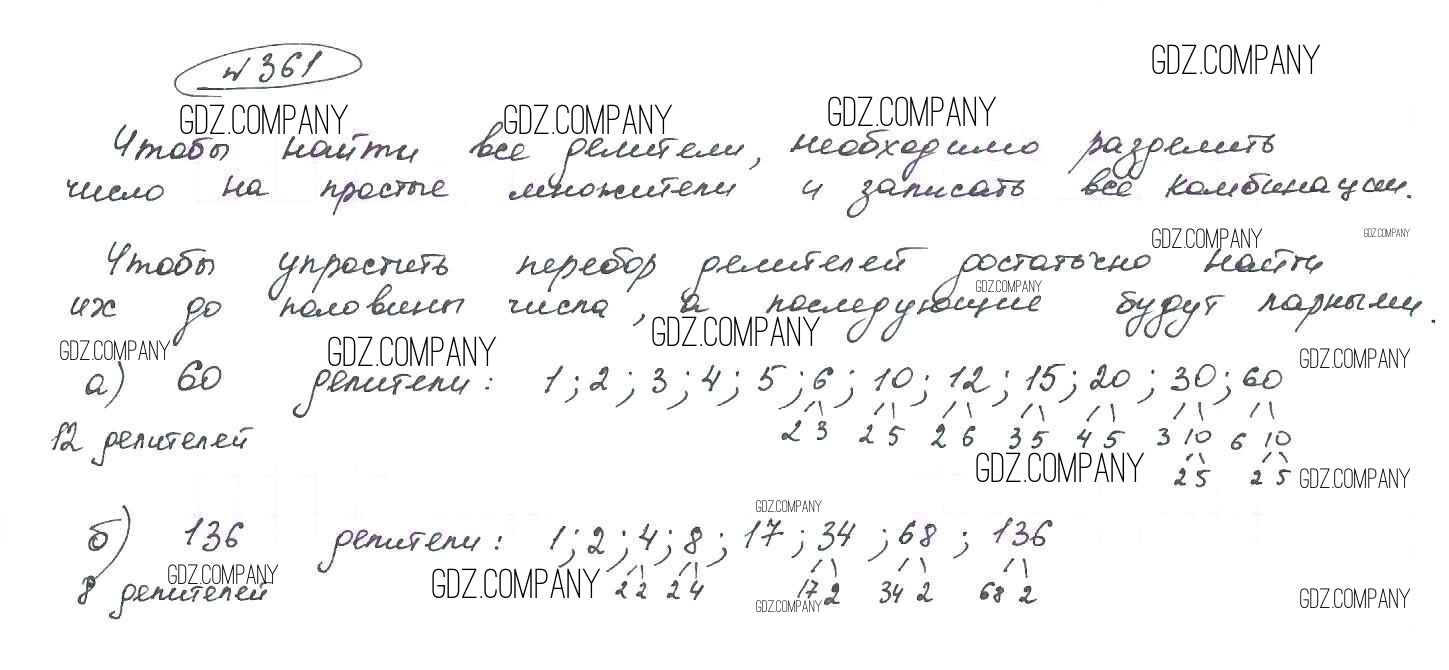 №361
GDZ.COMPANY
GDZ.COMPANY GDZ.COMPANY GDZ.COMPANY
Чтобы найти все делители, необходимо разделить
число на простые множители и записать все комбинации.
GDZ.COMPANY GDZ.COMPANY
Чтобы упростить перебор делителей достаточно найти
GDZ.COMPANY
их до половины числа, а последующие будут парными.
GDZ.COMPANY GDZ.COMPANY GDZ.COMPANY GDZ.COMPANY
а) 60 делители: 1; 2; 3; 4; 5; 6; 10; 12; 15; 20; 30; 60
12 делителей 2 3 2 5 2 6 3 5 4 5 3 10 6 10
GDZ.COMPANY 2 5 2 5 GDZ.COMPANY
GDZ.COMPANY
б) 136 делители: 1; 2; 4; 8; 17; 34; 68; 136
GDZ.COMPANY GDZ.COMPANY
8 делителей 2 2 2 4 17 2 34 2 68 2
GDZ.COMPANY GDZ.COMPANY